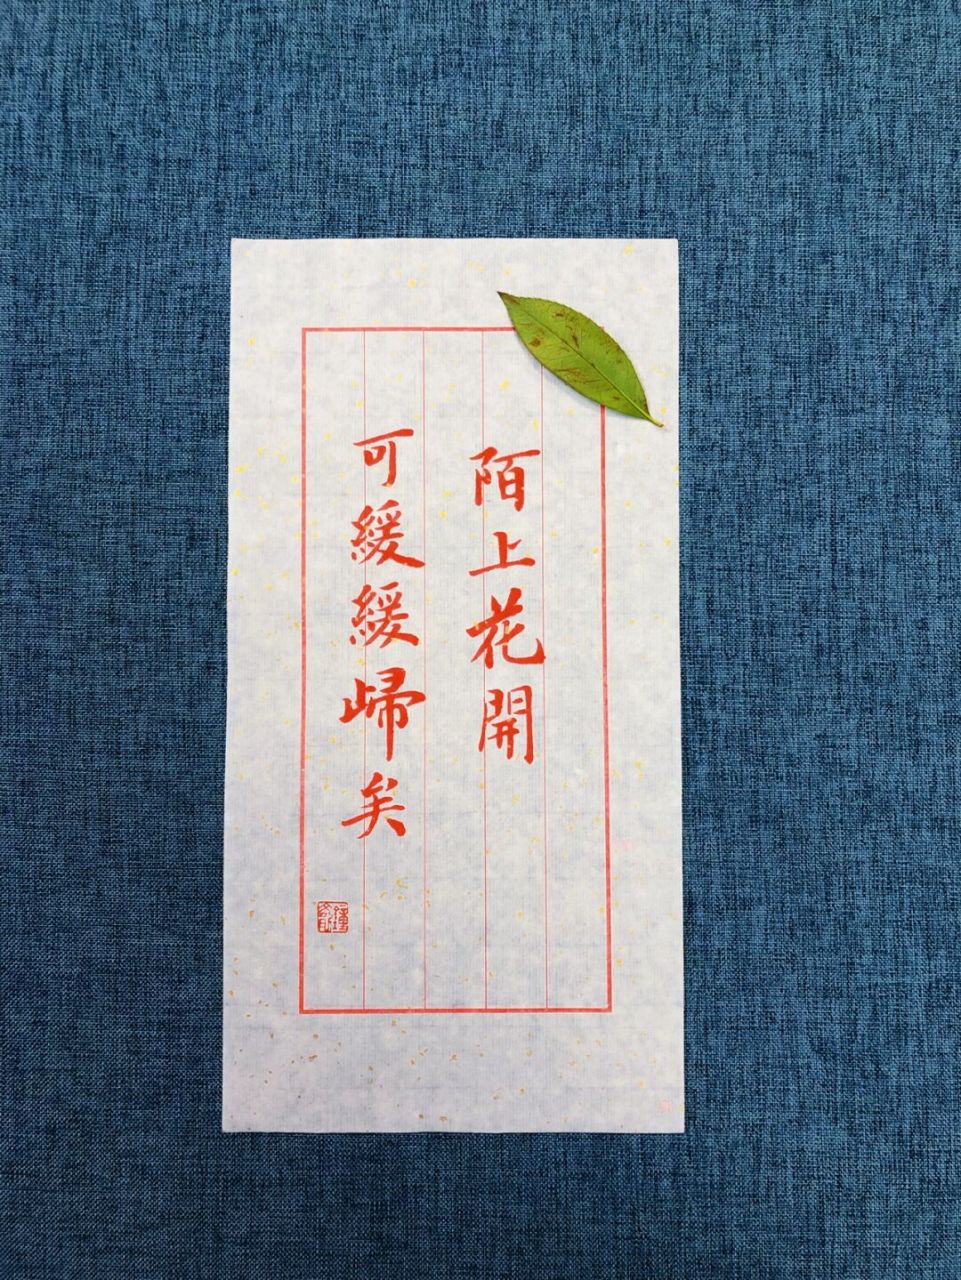 陌上花開
可緩緩歸矣